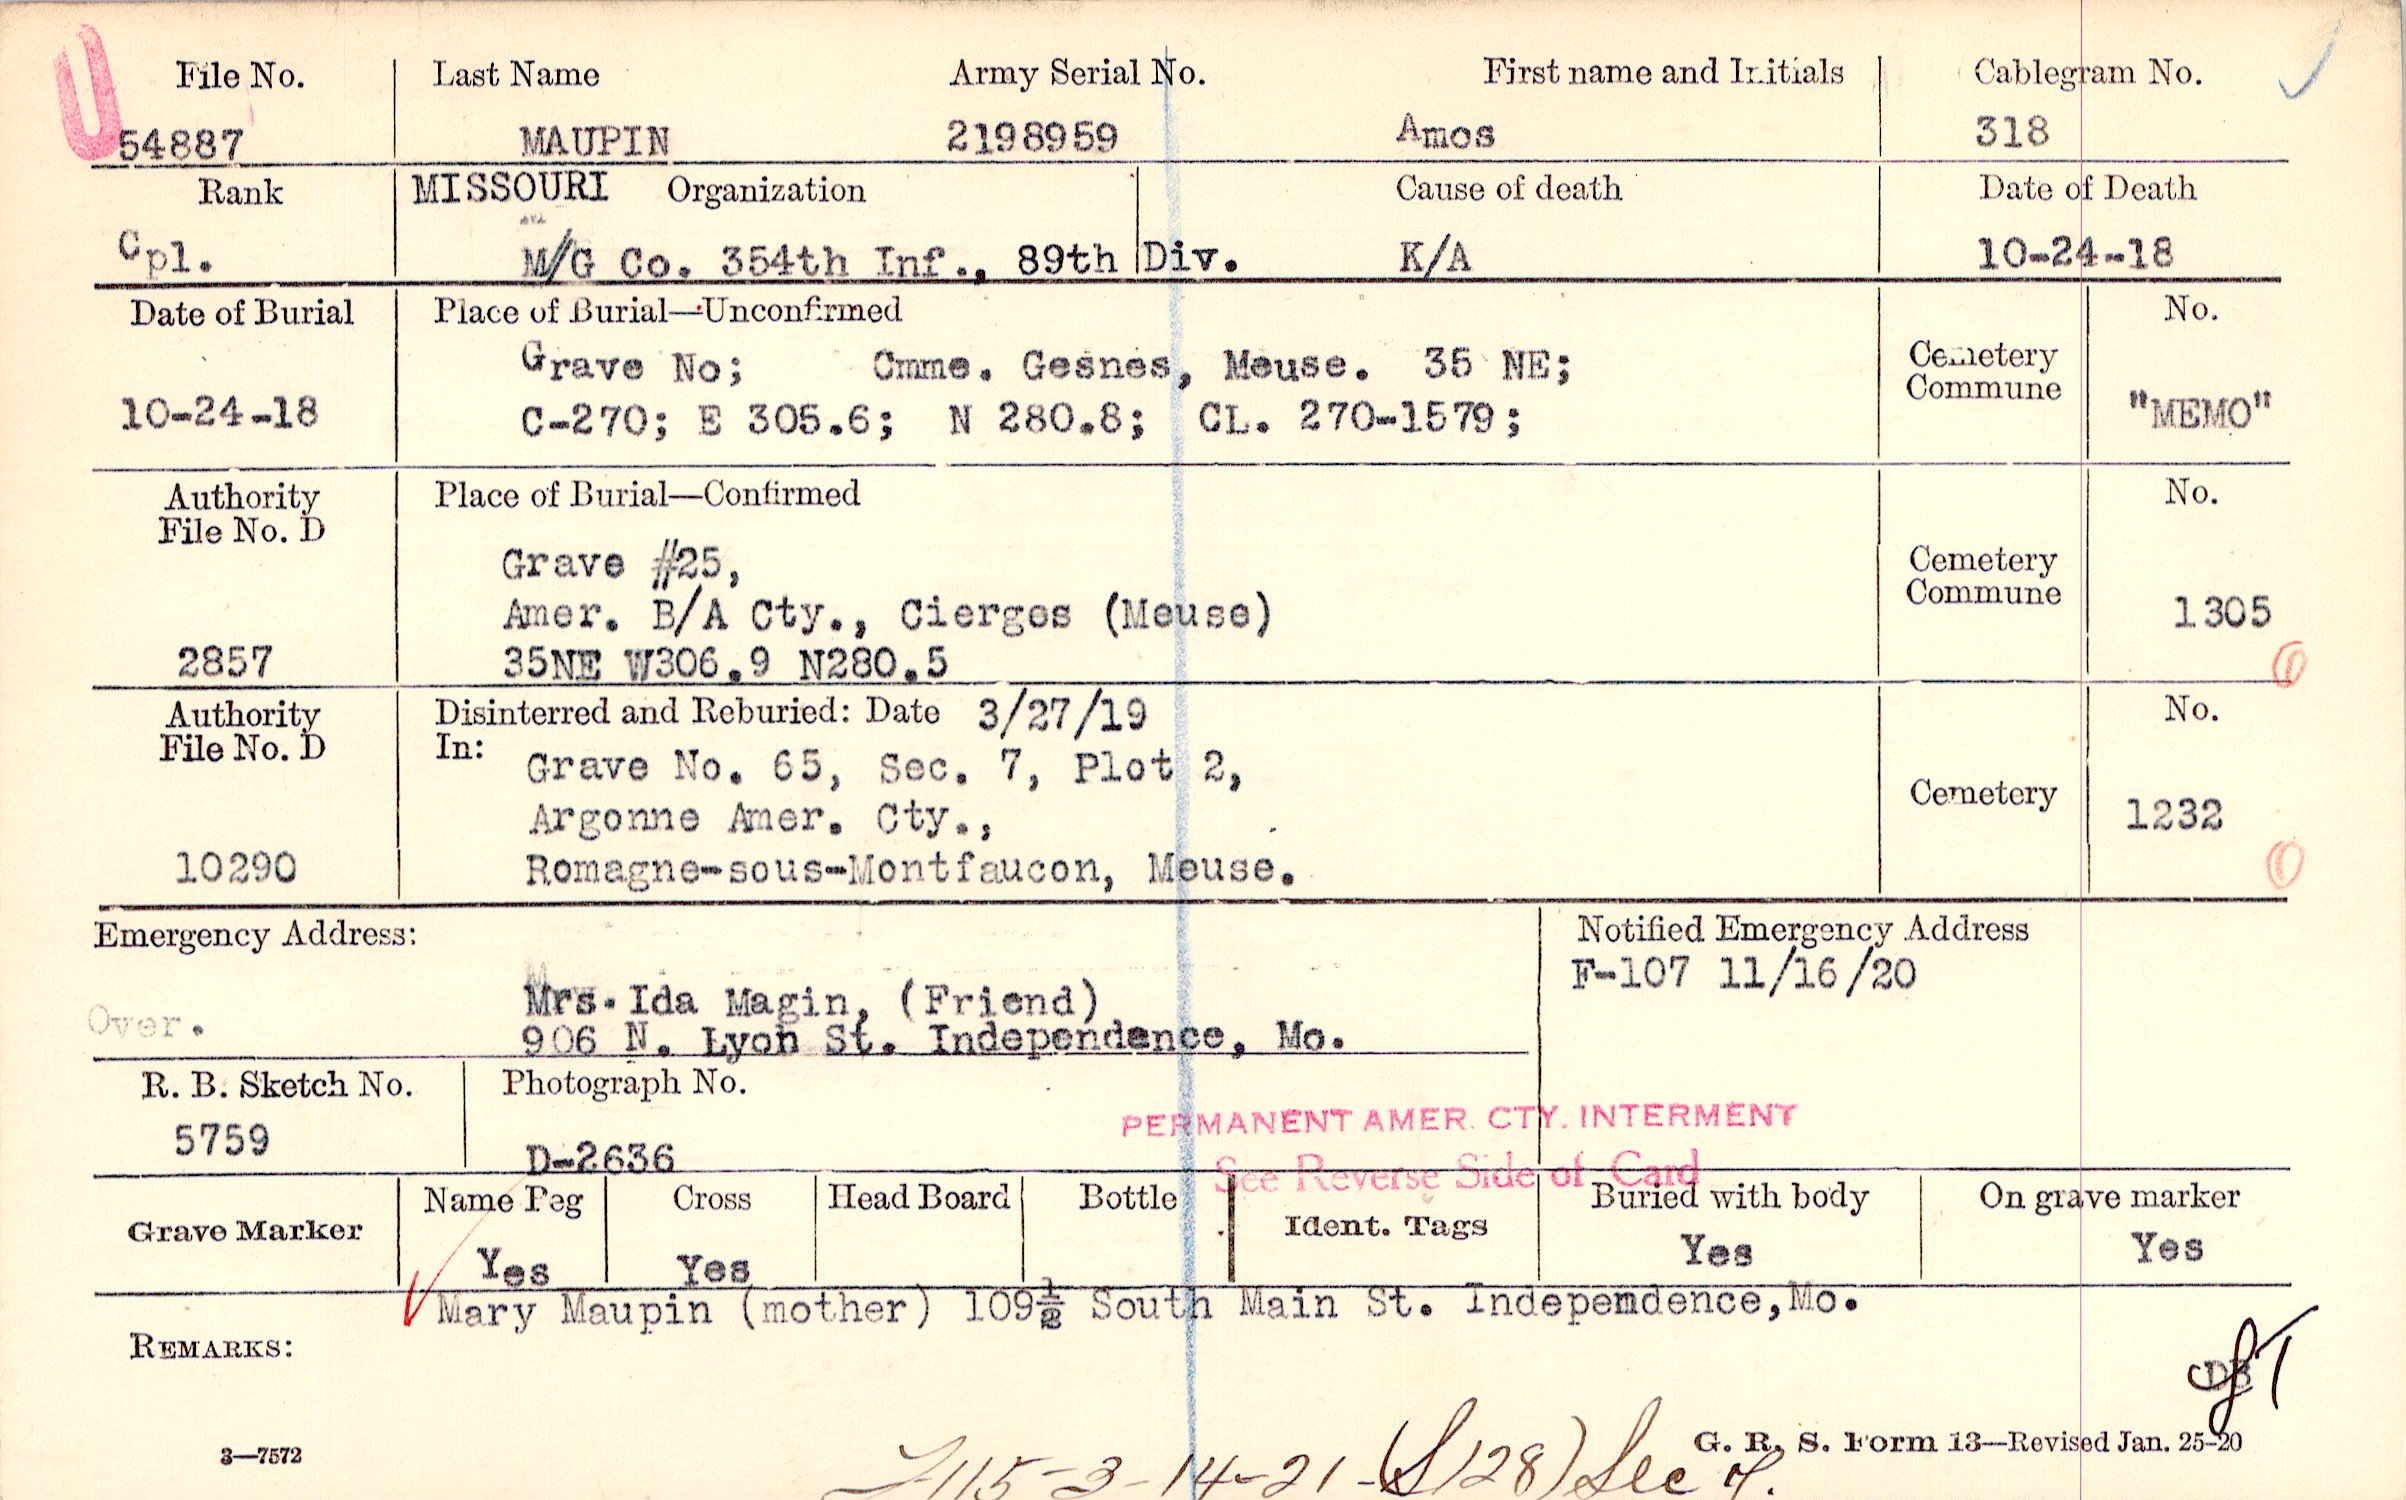 U
File No. Last Name Army Serial No. First name and Initials Cablegram No.
54887 MAUPIN 2198959 Amos 318
Rank MISSOURI Organization Cause of death Date of Death
Cpl. M/G Co. 354th Inf., 89th Div. K/A 10-24-18
Date of Burial Place of Burial—Unconfirmed No.
Grave No; Cmme. Gesnes, Meuse. 35 NE; Cemetery
Commune
10-24-18 C-270; E 305.6; N 280.8; CL. 270-1579; "MEMO"
Authority Place of Burial—Confirmed No.
File No. D
Grave #25, Cemetery
Commune
Amer. B/A Cty., Cierges (Meuse) 1305
2857 35NE W306.9 N280.5
Authority Disinterred and Reburied: Date 3/27/19 No.
File No. D In:
Grave No. 65, Sec. 7, Plot 2,
Argonne Amer. Cty., Cemetery 1232
10290 Romagne-sous-Montfaucon, Meuse.
Emergency Address: Notified Emergency Address
F-107 11/16/20
Mrs. Ida Magin, (Friend)
Over.
906 N. Lyon St. Independence, Mo.
R. B. Sketch No. Photograph No.
5759 D-2636
PERMANENT AMER. CTY. INTERMENT
See Reverse Side of Card
Grave Marker Name Peg Cross Head Board Bottle Ident. Tags Buried with body On grave marker
Yes Yes Yes Yes
Mary Maupin (mother) 109½ South Main St. Independence,Mo.
REMARKS:
3—7572 G. R. S. Form 13—Revised Jan. 25-20
115-3-14-21-(S128) Sec